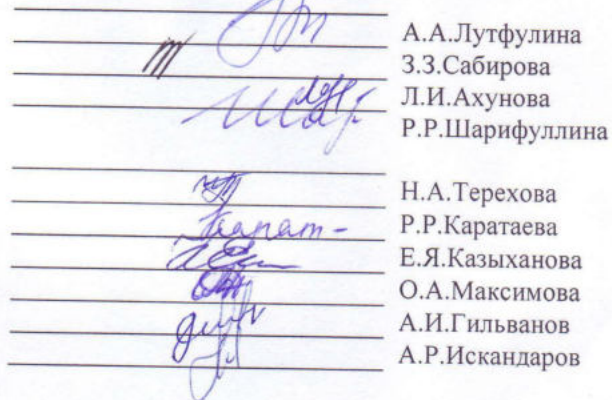 А.А.Лутфулина
З.З.Сабирова
Л.И.Ахунова
Р.Р.Шарифуллина
Н.А.Терехова
Карат- Р.Р.Каратаева
Е.Я.Казыханова
О.А.Максимова
А.И.Гильванов
А.Р.Искандаров